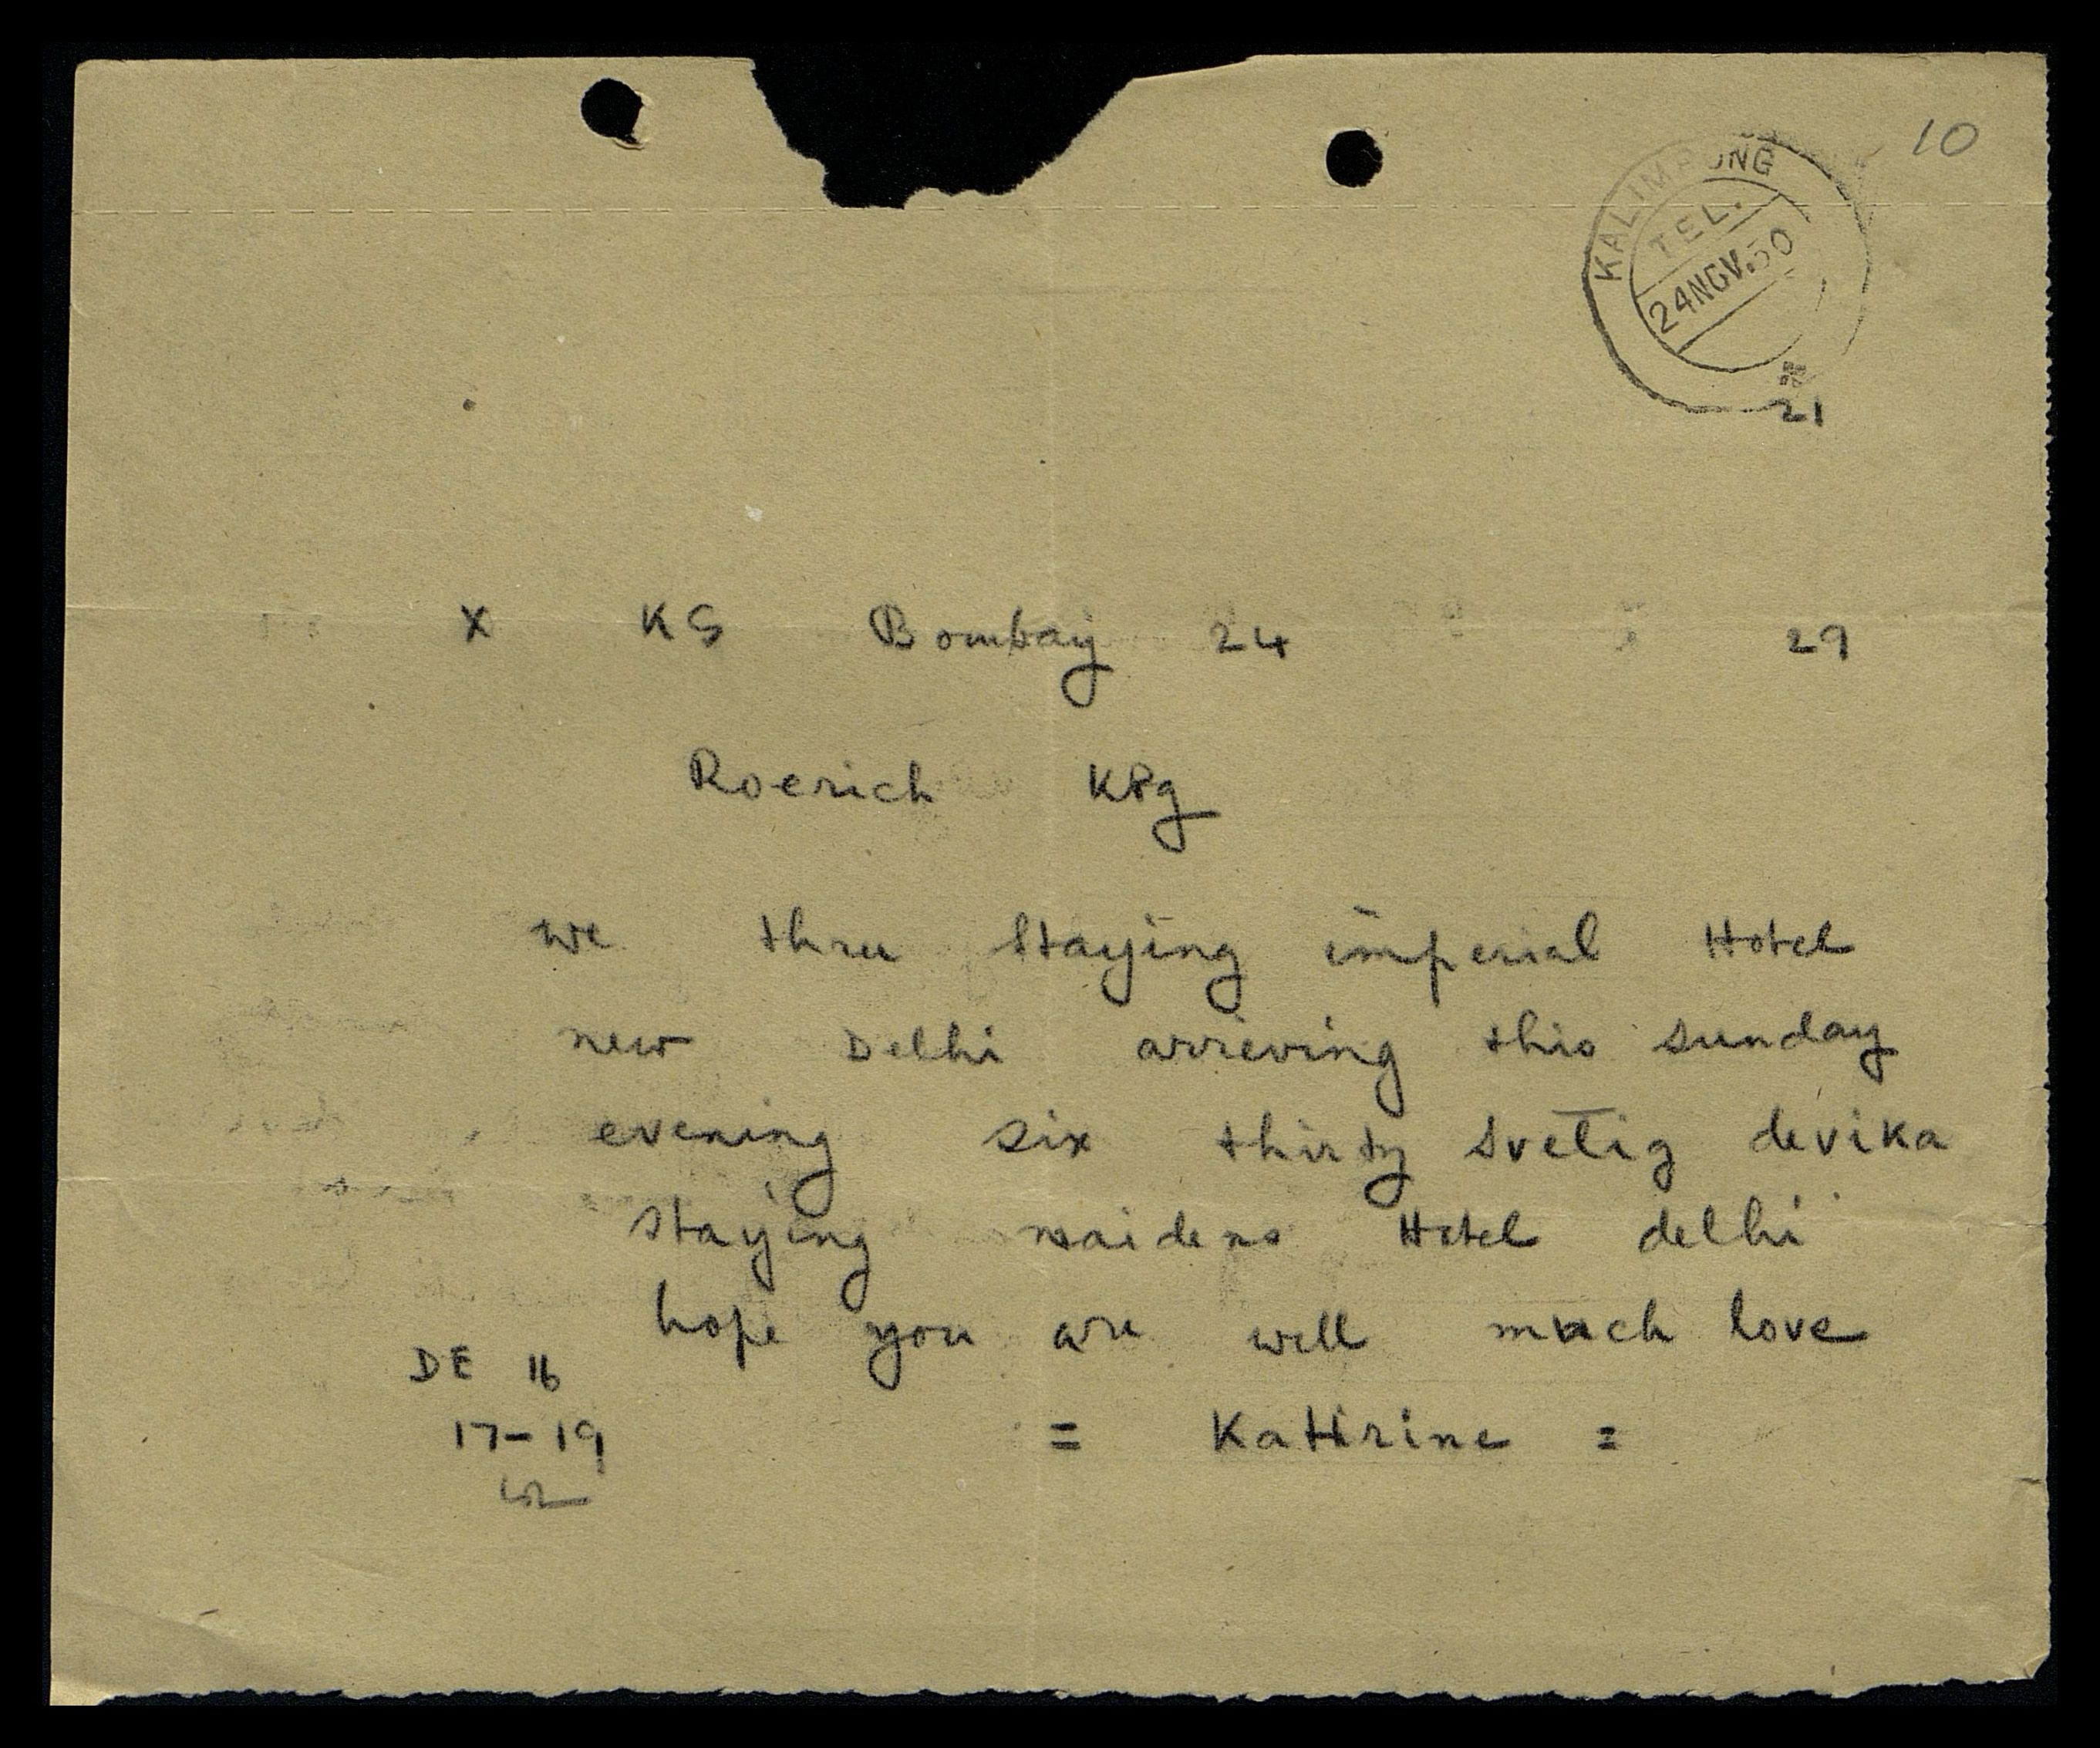 10
KALIMPONG
TEL.
24NOV.50
21
X KS Bombay 24 29
Roerich KPg
we three staying imperial Hotel
new Delhi arrieving this sunday
evening six thirty svetig devika
staying maidens Hotel delhi
hope you are well much love
DE 16
17-19
= Kathrine =